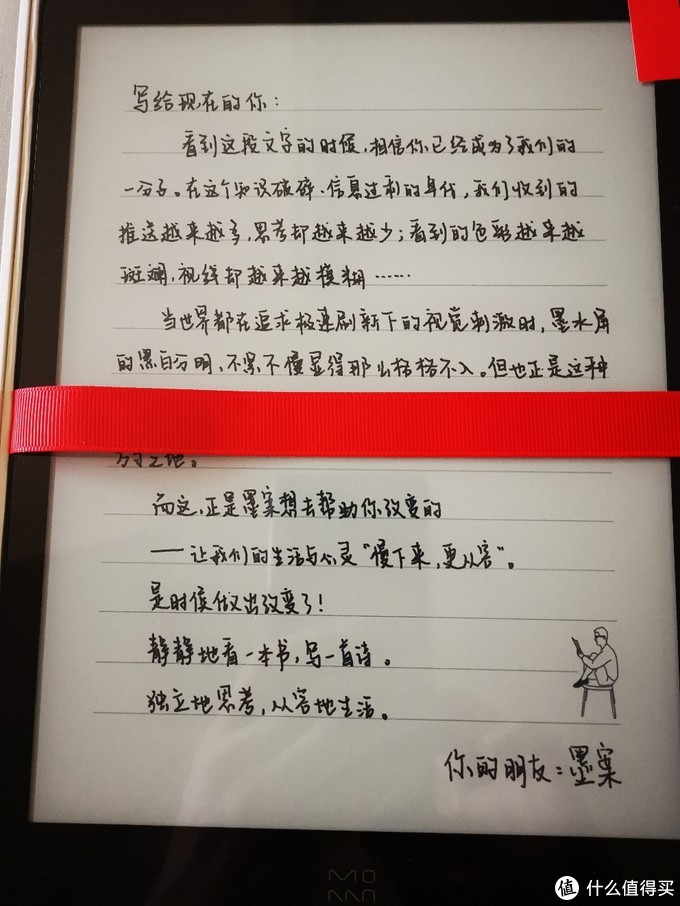 写给现在的你：
看到这段文字的时候，相信你已经成为了我们的
一分子。在这个知识破碎、信息过剩的年代，我们收到的
推送越来越多，思考却越来越少；看到的色彩越来越
斑斓，视线却越来越模糊……
当世界都在追求极速刷新下的视觉刺激时，墨水屏
的黑白分明、不紧不慢显得那么格格不入。但也正是这种
方寸之地。
而这，正是墨案想去帮助你改变的
——让我们的生活与心灵“慢下来，更从容”。
是时候做出改变了！
静静地看一本书，写一首诗。
独立地思考，从容地生活。
你的朋友：墨案
MOAN
值 什么值得买